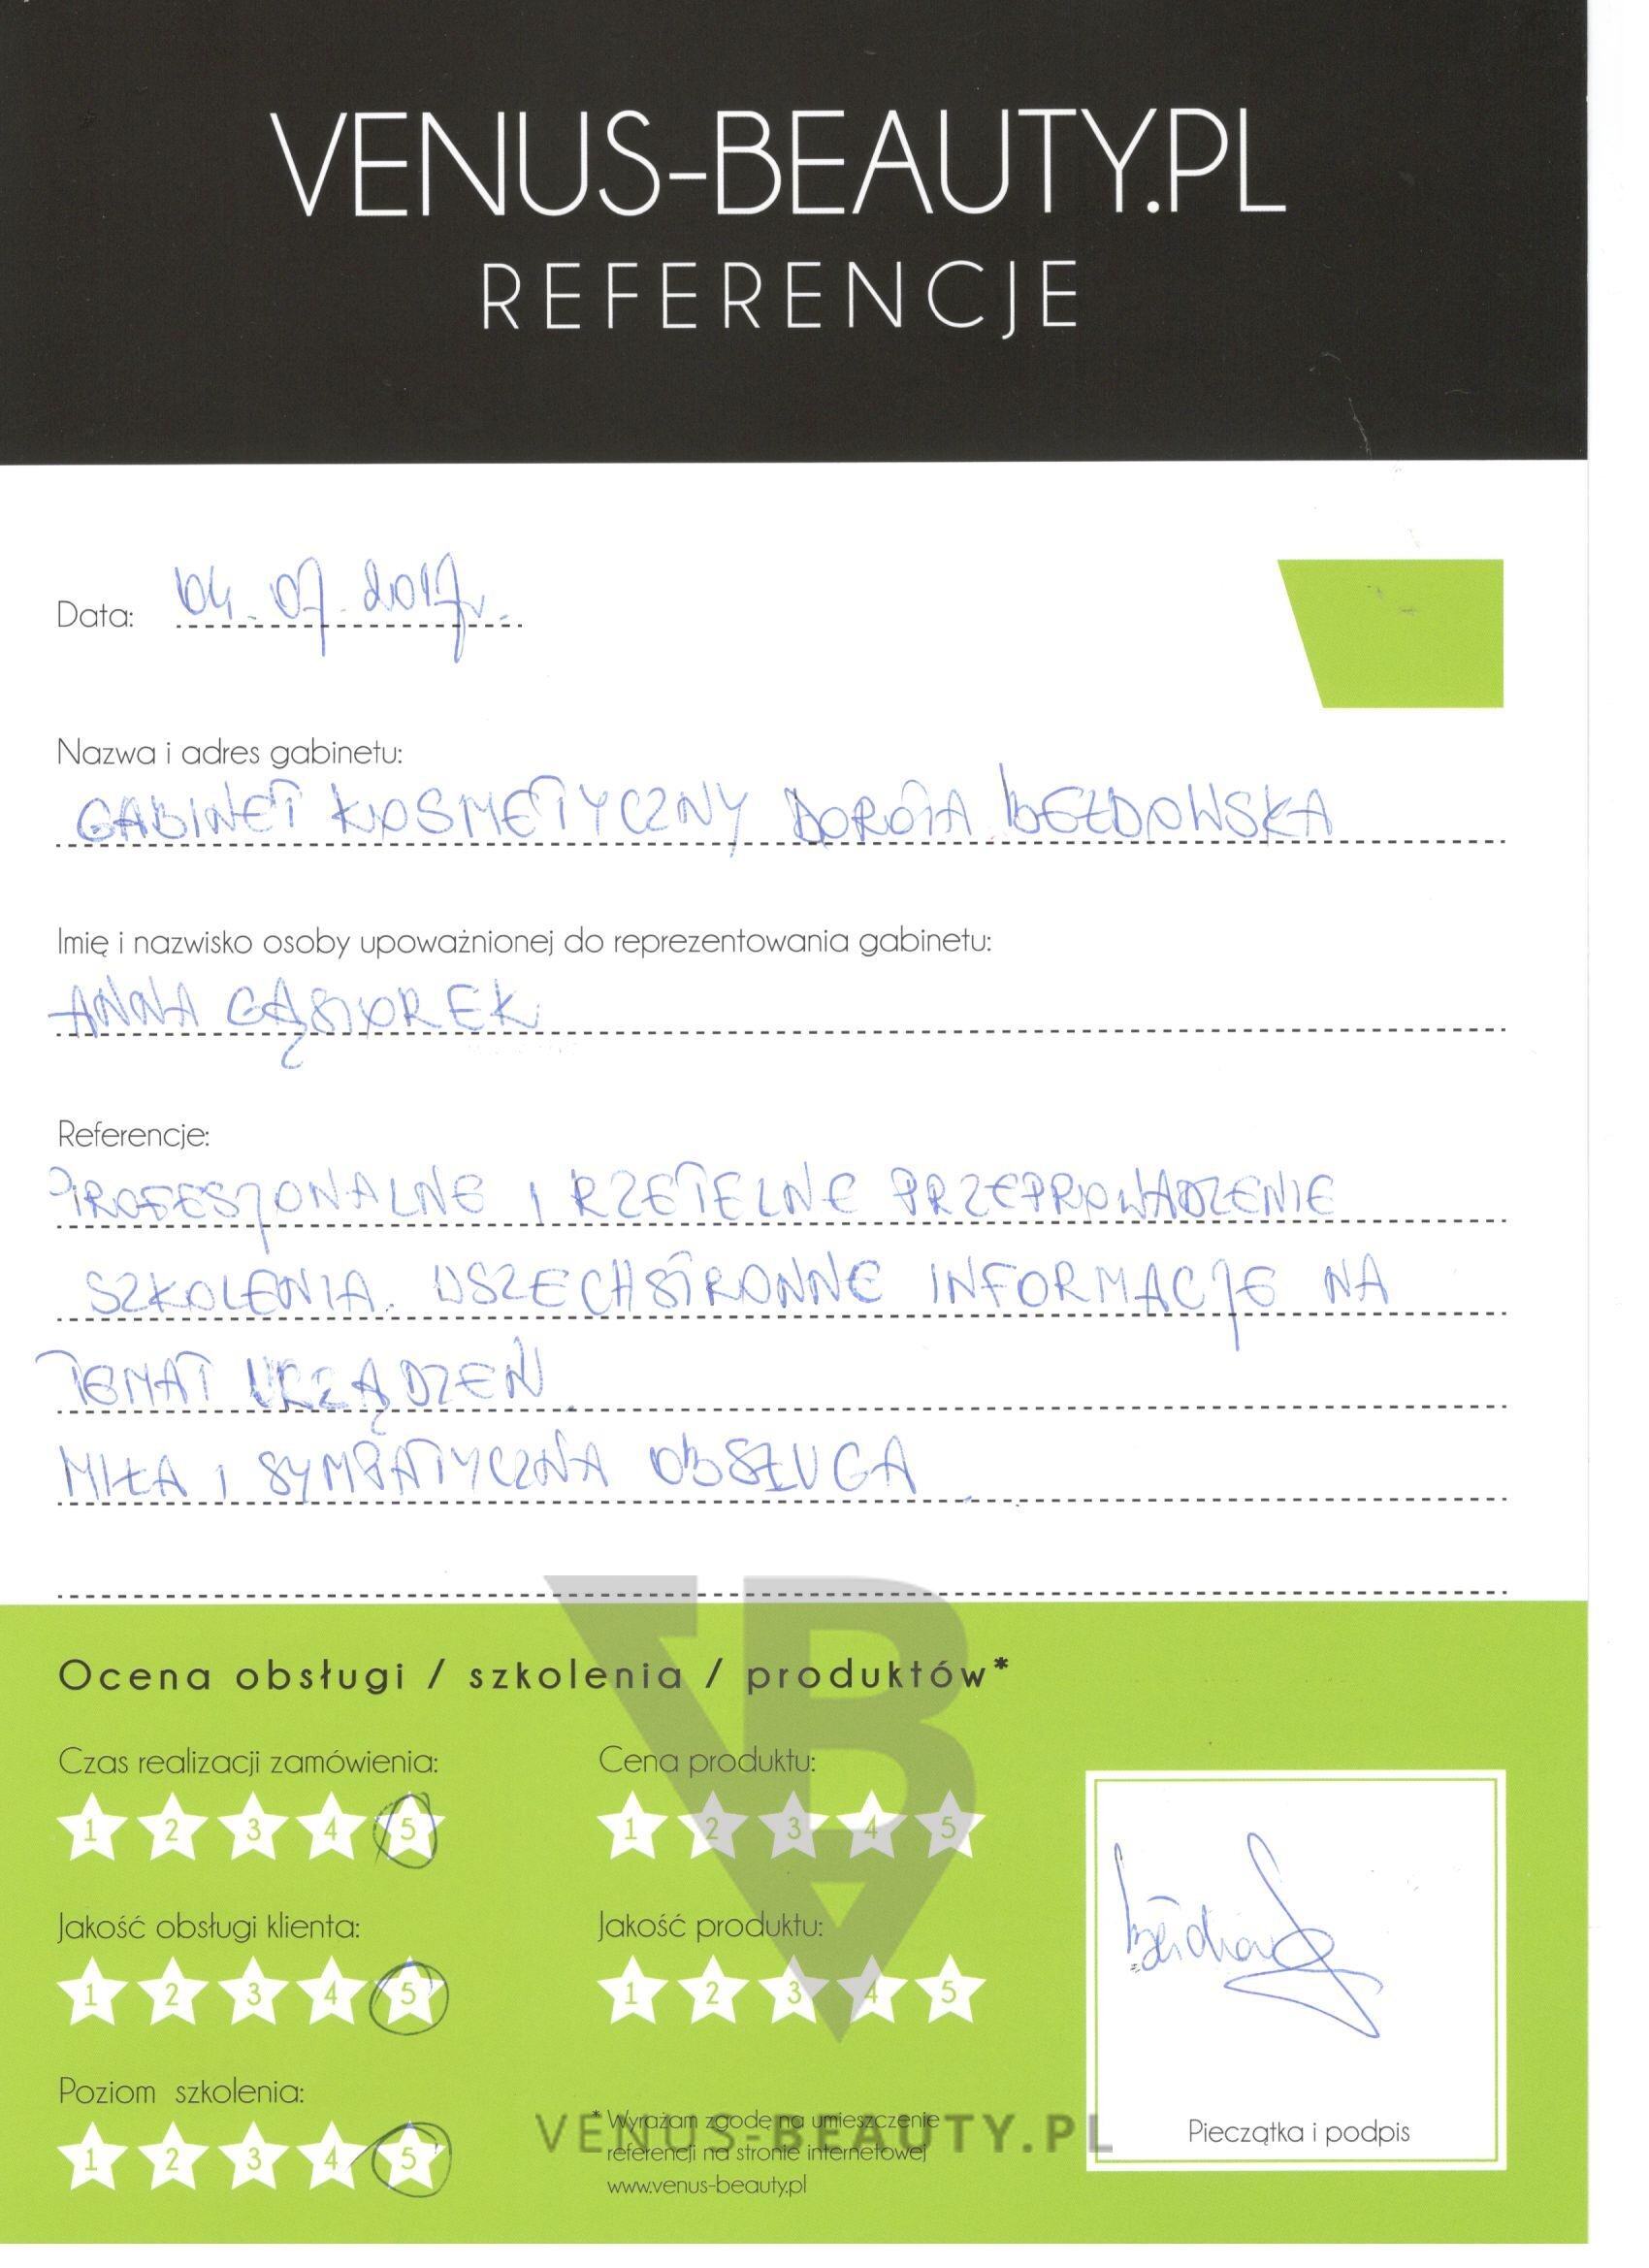 VENUS-BEAUTY.PL
REFERENCJE
Data: 04.07.2017r.
Nazwa i adres gabinetu:
GABINET KOSMETYCZNY DOROTA BEŁDOWSKA
Imię i nazwisko osoby upoważnionej do reprezentowania gabinetu:
ANNA GĄSIOREK
Referencje:
PROFESJONALNE I RZETELNE PRZEPROWADZENIE
SZKOLENIA. WSZECHSTRONNE INFORMACJE NA
TEMAT URZĄDZEŃ
MIŁA I SYMPATYCZNA OBSŁUGA
Ocena obsługi / szkolenia / produktów*
Czas realizacji zamówienia:
1 2 3 4 5
Cena produktu:
1 2 3 4 5
Jakość obsługi klienta:
1 2 3 4 5
Jakość produktu:
1 2 3 4 5
Poziom szkolenia:
1 2 3 4 5
* Wyrażam zgodę na umieszczenie
referencji na stronie internetowej
www.venus-beauty.pl
Pieczątka i podpis
VBA
VENUS-BEAUTY.PL